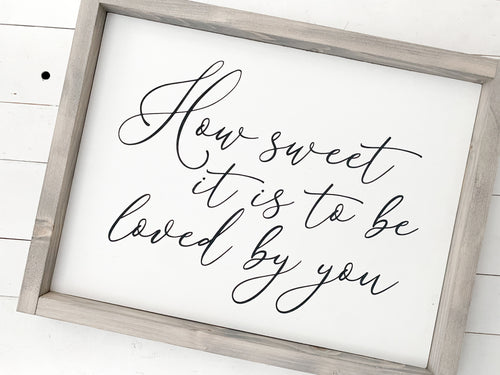 How sweet
it is to be
loved by you